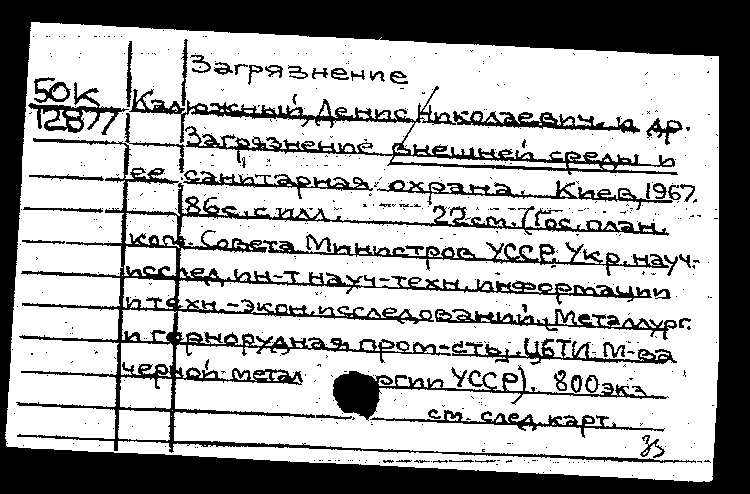 Загрязнение
50К
12877
Калюжный, Денис Николаевич. и др.
Загрязнение внешней среды и
ее санитарная охрана. Киев, 1967.
86с. с илл. 22см. (Гос. план.
ком. Совета Министров УССР. Укр. науч-
исслед. ин-т науч-техн. информации
и техн.-экон. исследований. Металлург.
и горнорудная пром-сть; ЦБТИ М-ва
черной метал ргии УССР). 800экз
см. след. карт.